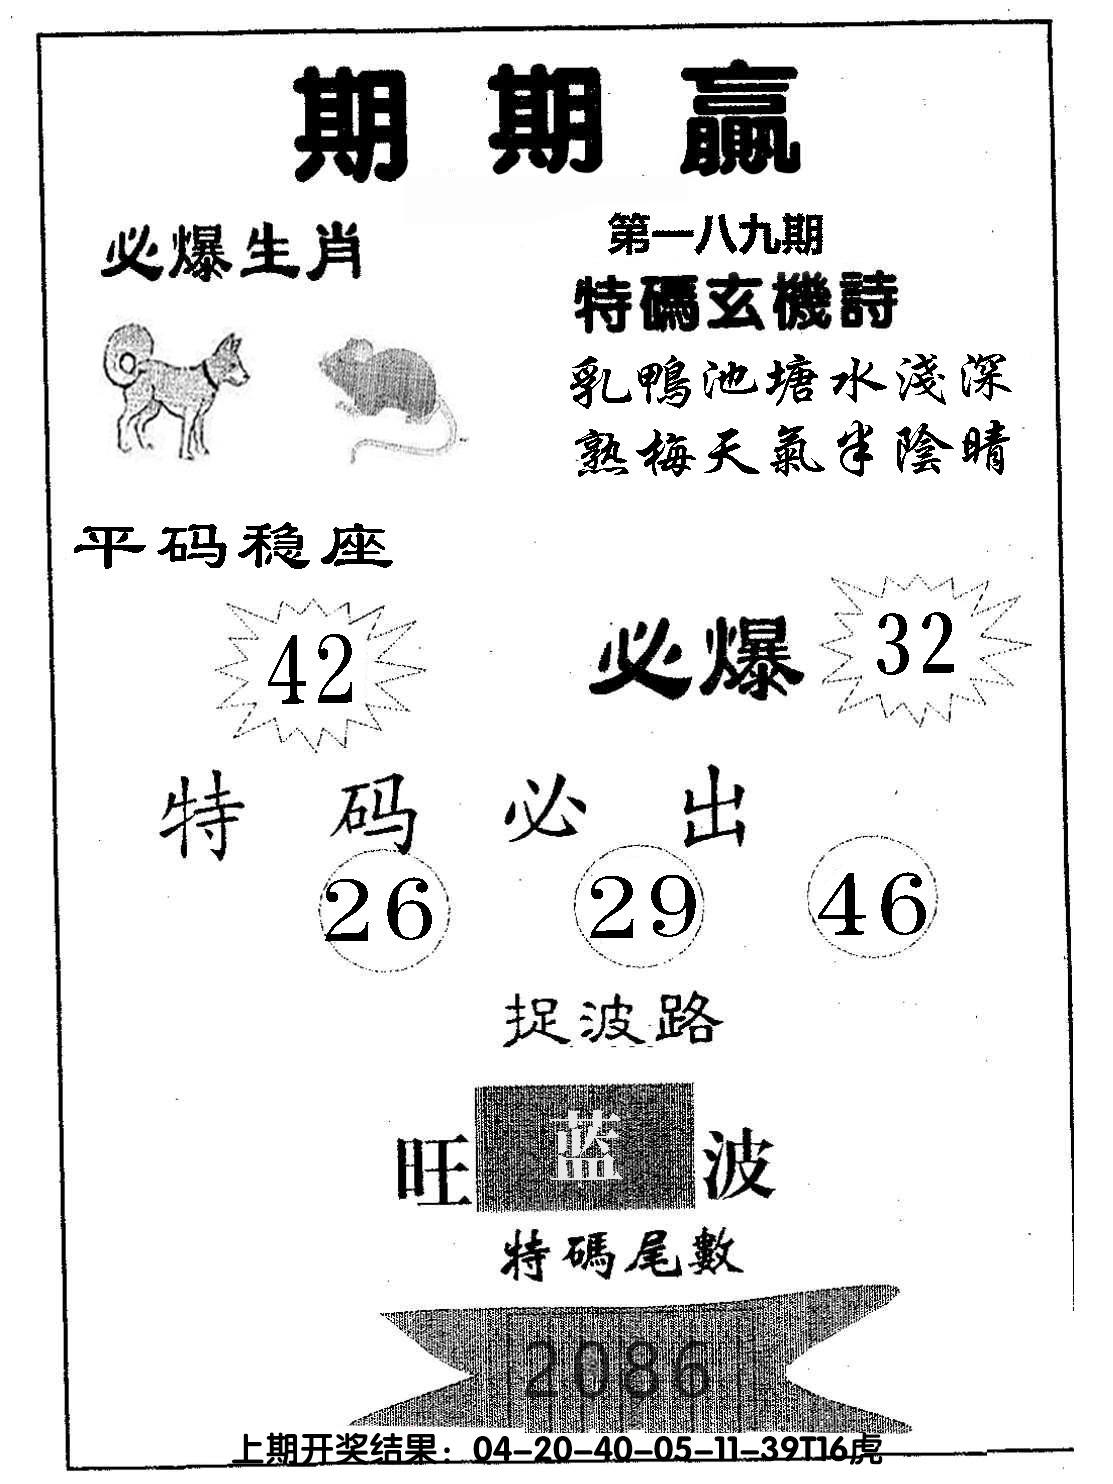 期期贏
必爆生肖
第一八九期
特碼玄機詩
乳鴨池塘水淺深
熟梅天氣半陰晴
平码稳座
42
必爆 32
特码必出
26 29 46
捉波路
旺 蓝 波
特碼尾數
2086
上期开奖结果：04-20-40-05-11-39T16虎